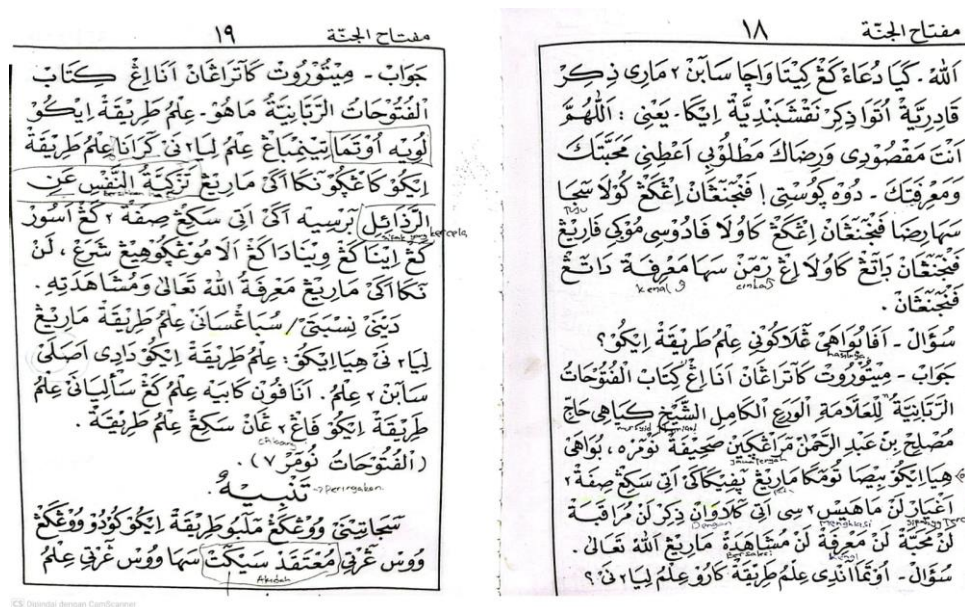 مفتاح الجنّة ١٨
اَللهُ. كَيَا دُعَاءْ كَڠْ كِيْتَا وَاچَا سَابَنْ ٢ مَارِى ذِكِرْ
قَادِرِيَّةْ اُتَوَا ذِكِرْ نَقْشَبَنْدِيَّةْ اِيْكَا. يَعْنِى : اَللّٰهُمَّ
اَنْتَ مَقْصُوْدِى وَرِضَاكَ مَطْلُوْبِى اَعْطِنِى مَحَبَّتَكَ
وَمَعْرِفَتَكَ - دُوْه ڮُوْسْتِى! فَنْجَنَڠَانْ اِڠْكَڠْ كُوْلَا سَجَا
Tuju
سَهَا رِضَا فَنْجَنَڠَانْ اِڠْكَڠْ كَاوُلَا فَادُوْسِى مُوْڮِى فَارِيْڠْ
فَنْجَنَڠَانْ دَاتَڠْ كَاوُلَا اِڠْ رَمَنْ سَهَا مَعْرِفَةْ دَاتَڠْ
kenal
فَنْجَنَڠَانْ.
سُؤَالْ - اَفَا بُوَاهَىْ ڠْلَاكُوْنِى عِلْمُ طَرِيْقَةْ اِيْكُوْ؟
hasilnya
جَوَابْ - مِيْتُوْرُوْتْ كَاتَرَاڠَانْ اَنَا اِڠْ كِتَابْ الْفُتُوْحَاتُ
الرَّبَّانِيَّةْ لِلْعَلَامَةِ الْوَرِعِ الْكَامِلِ الشَّيْخِ كِيَاهِى حَاجِّ
مُصْلِحْ بِنْ عَبْدِ الرَّحْمٰنْ مْرَاڠْكَيْنْ صَحِيْفَةْ نُوْمَرْ ٥، بُوَاهَىْ
هِيَا اِيْكُوْ بِيْصَا تُوْمَكَا مَارِيْڠْ
اَتِى سَكِيْڠْ صِفَةْ ٢
اَغْيَارْ لَنْ
سِى اَتِى كَلَاوَانْ ذِكِرْ لَنْ مُرَاقَبَةْ
Dengan
لَنْ مَحَبَّةْ لَنْ مَعْرِفَةْ لَنْ مُشَاهَدَةْ مَارِيْڠْ اَللهْ تَعَالٰى.
Bersaksi
سُؤَالْ - اُوْتَمَا اَنْدِى عِلْمُ طَرِيْقَةْ كَارُوْ عِلْمُ لِيَا ٢ نَىْ؟
مفتاح الجنّة ١٩
جَوَابْ - مِيْتُوْرُوْتْ كَاتَرَاڠَانْ اَنَا اِڠْ كِتَابْ
الْفُتُوْحَاتُ الرَّبَّانِيَّةُ مَاهُوْ - عِلْمُ طَرِيْقَةْ اِيْكُوْ
لُوِيْه اُوْتَمَا تِيْنِمْبَاڠْ عِلْمُ لِيَا ٢ نَىْ كَرَانَا عِلْمُ طَرِيْقَةْ
اِيْكُوْ كَاڠْڮُوْ نَكَاأَكَىْ مَارِيْڠْ تَزْكِيَةُ النَّفْسِ عَنِ
الرَّذَائِلِ بَرْسِيْه اَكَىْ اَتِى سَكِيْڠْ صِفَةْ ٢ كَڠْ اَسُوْرْ
sifat yang bercela
كَڠْ اِيْنَا كَڠْ وِيْنَادَا كَڠْ اَلَا مُوْڠْڮُوْهِيْڠْ شَرَعْ، لَنْ
نَكَاأَكَىْ مَارِيْڠْ مَعْرِفَةُ اللهْ تَعَالٰى وَمُشَاهَدَتِهِ.
دَيْنَىْ نِسْبَتَىْ/ سُبَاڠْسَانَىْ عِلْمُ طَرِيْقَةْ مَارِيْڠْ
لِيَا ٢ نَىْ هِيَا اِيْكُوْ : عِلْمُ طَرِيْقَةْ اِيْكُوْ دَادِى اَصْلَىْ
سَابَنْ ٢ عِلْمُ. اَنَافُوْنْ كَابَيْه عِلْمُ كَڠْ سَأْلِيَانَىْ عِلْمُ
طَرِيْقَةْ اِيْكُوْ فَاڠْ ٢ ڠَانْ سَكِيْڠْ عِلْمُ طَرِيْقَةْ.
cabang
(الْفُتُوْحَاتُ نُوْمَرْ ٧).
تَنْبِيْهٌ. → Peringatan
سَجَاتِيْنَىْ وُوْڠْكَڠْ مْلَبُوْ طَرِيْقَةْ اِيْكُوْ كُوْدُوْ وُوْڠْكَڠْ
وُوْسْ ڠْرْتِى مُعْتَقَدْ سَيْكَتْ سَهَا وُوْسْ ڠْرْتِى عِلْمُ
Akidah
CS Dipindai dengan CamScanner